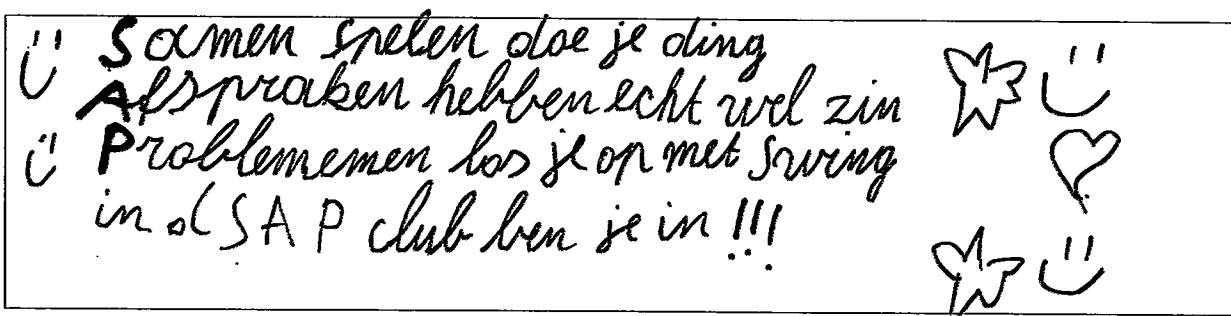 Samen spelen doe je ding
Afspraken hebben echt wel zin
Problememen los je op met swing
in d SAP club ben je in !!!